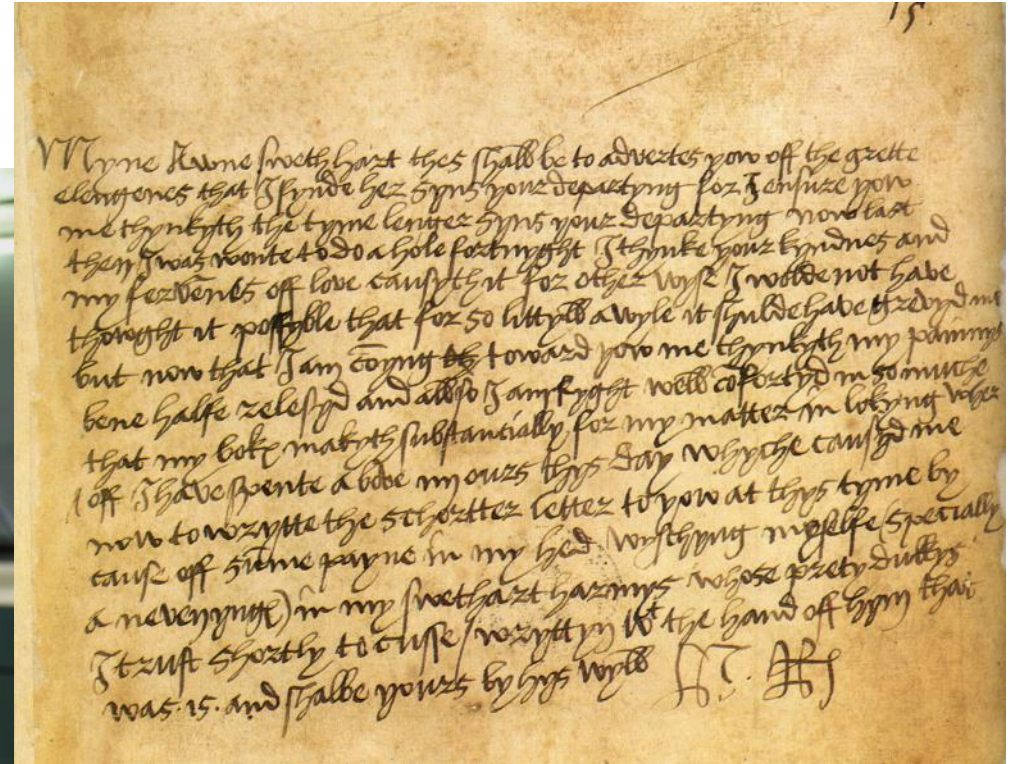 15.
Myne Awne swethhart thes shall be to advertes yow off the grette
elengenes that I fynde her syns your departyng for I ensure yow
me thynkyth the tyme lenger syns your departyng now last
then I was wonte to do a hole fortnyght I thynke your kyndnes and
my fervēnes off love causyth it for other wyse I wolde not have
thowght it possyble that for so littyll a wyle it shulde have grevyd me
but now that I am cōyng toward yow me thynkyth my painnys
bene halfe relesyd and allso I am ryght well cōfortyd in so muche
that my boke makyth substantially for my matter in lokyng wher
off I have spente above iiii ours thys day whyche causyd me
now to wrytte the schortter letter to yow at thys tyme by
cause off sūme payne in my hed wyschyng myselfe (specially
a nevenynge) in my swethart harmys whose prety dukkys
I trust shortly to cusse / wryttyn wt the hand off hym that
was. is. and shalbe yours by hys wyll H. R